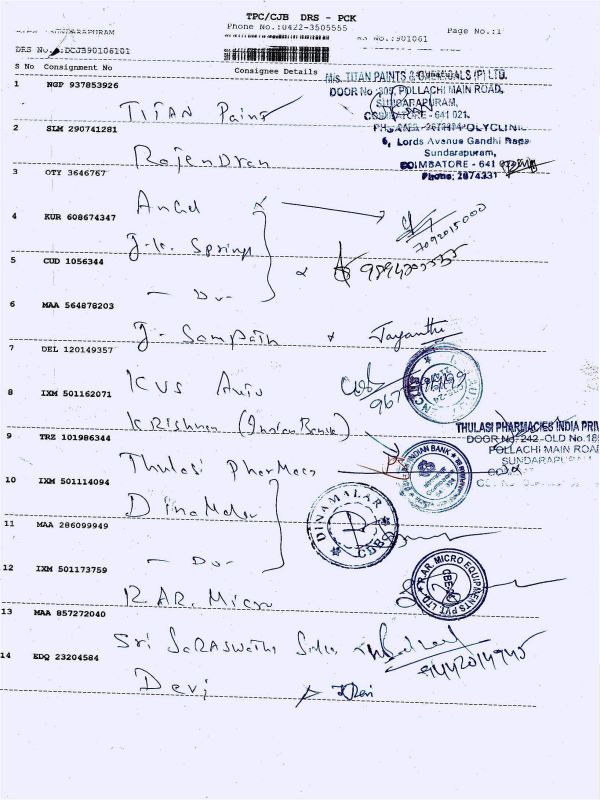 TPC/CJB DRS - PCK
Phone No.:0422-3505555
SUNDARAPURAM
RS NO.:901061
Page No.:1
DRS No.:DCJB90106101
S No Consignment No
Consignee Details
1 NGP 937853926
TITAN Paint
M/s. TITAN PAINTS & CHEMICALS (P) LTD.
DOOR No 309, POLLACHI MAIN ROAD,
SUNDARAPURAM,
COIMBATORE - 641 021.
2 SLM 290741281
Rajendran
6, Lords Avenue Gandhi Nagar
Sundarapuram,
COIMBATORE - 641
Phone: 2674331
3 OTY 3646767
Angel
4 KUR 608674347
J.K. Springs
7092015000
5 CUD 1056344
- Do -
6 MAA 564878203
J. Sampath
Jayanthi
7 DEL 120149357
KVS Auto
8 IXM 501162071
Krishnan (Indian Bank)
9 TRZ 101986344
Thulasi Pharmacy
THULASI PHARMACIES INDIA PRIV
DOOR No: 242-OLD No.189
POLLACHI MAIN ROAD
SUNDARAPURAM
INDIAN BANK
10 IXM 501114094
Dinamalar
DINAMALAR
CDB
11 MAA 286099949
- Do -
12 IXM 501173759
R.AR. Micro
R.AR. MICRO EQUIPMENTS PVT. LTD.
CBE
13 MAA 857272040
Sri Saraswathi Sales
9442014945
14 EDQ 23204584
Devi
Devi